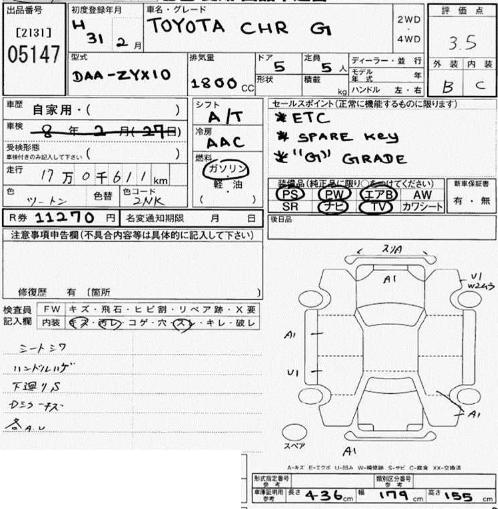 出品番号
[2131]
05147
初度登録年月
H 31年 2月
車名・グレード
TOYOTA CHR G
2WD
4WD
評価点
3.5
外装 内装
B C
型式
DAA-ZYX10
排気量
1800 CC
ドア
5
形状
定員
5人
積載
kg
ディーラー・並行
モデル年式 年
ハンドル 左・右
車歴
自家用・( )
車検
8年 2月(27日)
受検形態
車検付きのみ記入して下さい
( )
走行
17万0千611km
色
ツートン
色コード
2NK
シフト
A/T
冷房
AAC
燃料
ガソリン
軽・油
( )
セールスポイント(正常に機能するものに限ります)
*ETC
*SPARE KEY
*"(G)" GRADE
装備品(純正品に限り○をつけてください)
PS PW エアB AW
SR ナビ TV カワシート
新車保証書
有・無
後日品
R券 11270円
名変通知期限 月 日
注意事項申告欄(不具合内容等は具体的に記入して下さい)
修復歴 有 〔箇所
検査員記入欄
FW キズ・飛石・ヒビ割・リペア跡・X要
内装 キズ・汚レ・コゲ・穴・スレ・キレ・破レ
シートシワ
ハンドルハゲ
下廻りS
各A.U
スリA
A1
U1
W2ｺｼ3
A1
U1
A1
A1
スペア
A-キズ E-エクボ U-凹み W-補修跡 S-サビ C-腐食 XX-交換済
形式指定番号
参考
類別区分番号
参考
車庫証明用
参考
長さ 436cm
幅 179cm
高さ 155cm